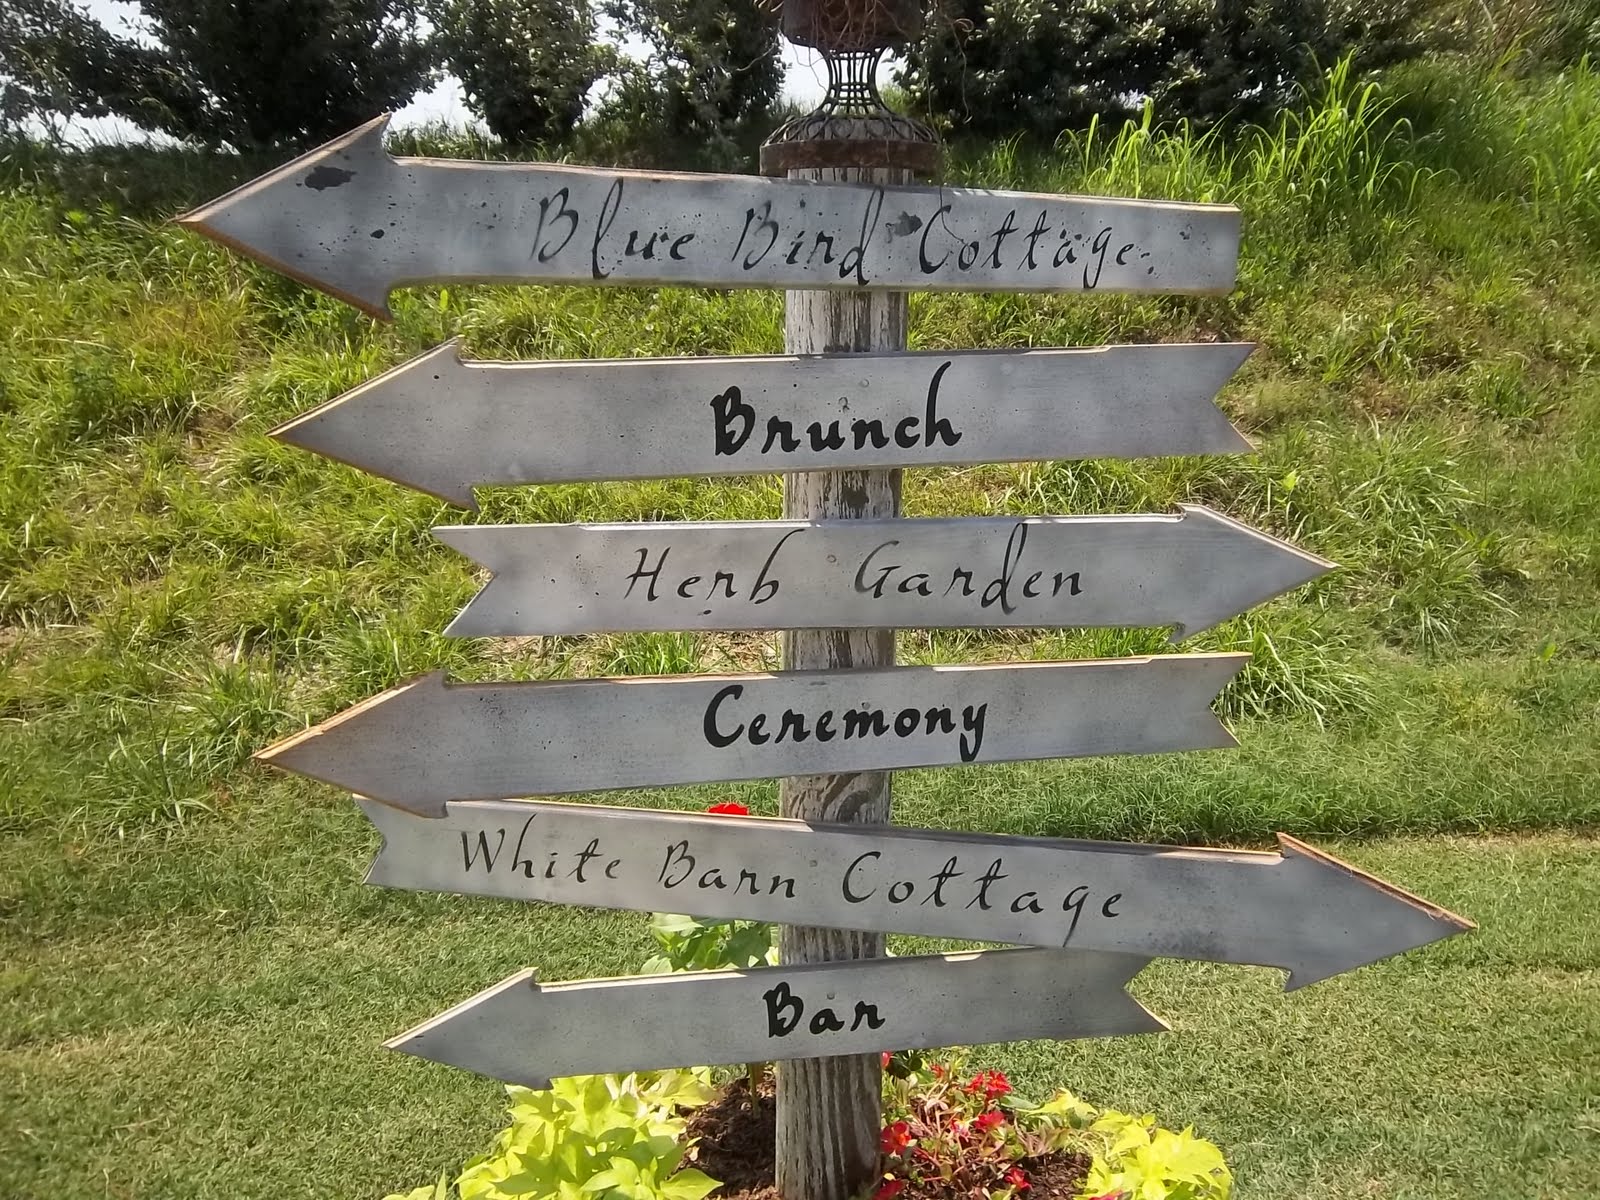 Blue Bird Cottage
Brunch
Herb Garden
Ceremony
White Barn Cottage
Bar